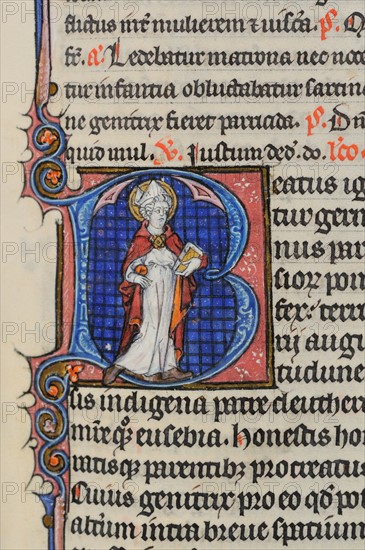 fluctus int̃ mulierem ⁊ uisc̃a. ps.
fr̃. a. Ledebatur matrona nec noce
tur infantia obluctabatur sarcina
ne genitrix fieret parricida. ps. Dñ
quid mul. V. Iustum ded. do. Lc̃o.
Beatus ig
tur germ
nus par
sioꝝ pon
fex. terr
rij augu
tudune
sis indigena patre deuther
mr̃eqꝫ eusebia. Honestis hon
intisqꝫ parentibꝫ procreatus
Cuius genitrix pro eo qd̃ pot
altum intra breue spatium